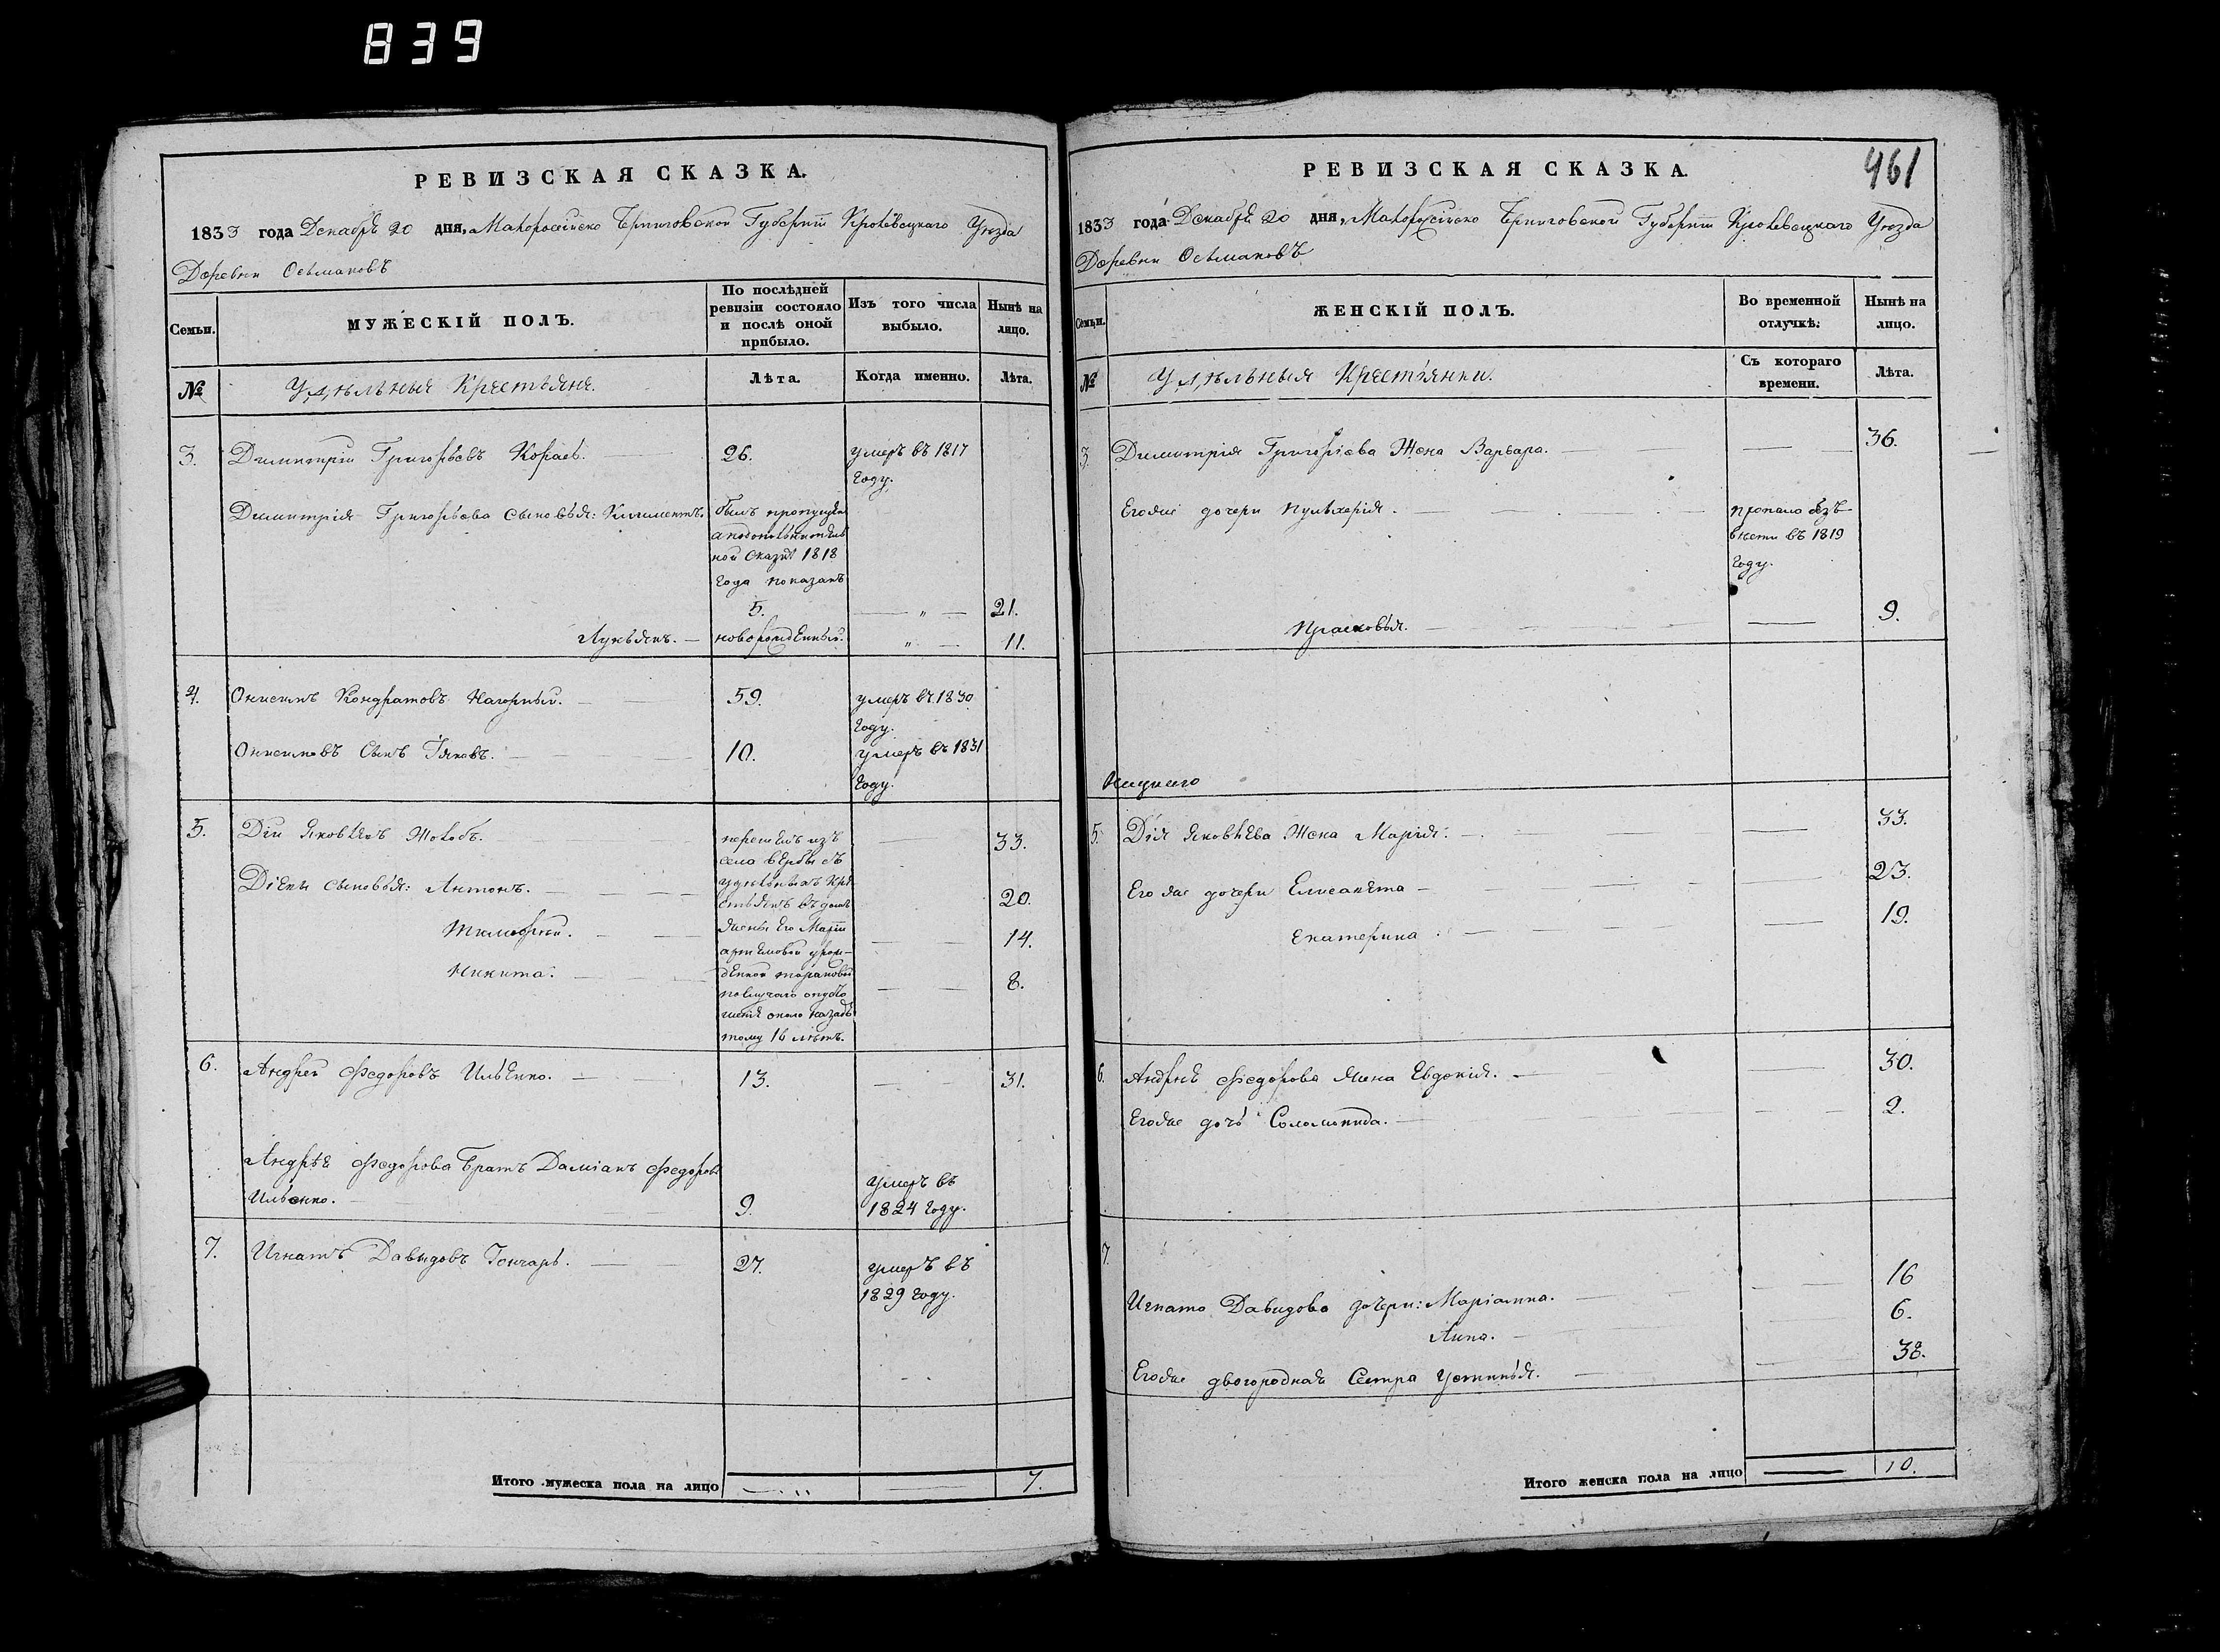 839
РЕВИЗСКАЯ СКАЗКА.
1833 года Декабря 20 дня, Малороссійско Черниговской Губерніи Кролевецкаго Уезда
Деревни Осьмаковъ
Семьи.
МУЖЕСКІЙ ПОЛЪ.
По послѣдней ревизіи состояло и послѣ оной прибыло.
Изъ того числа выбыло.
Нынѣ на лицо.
№
Удѣльныя Крестьяне.
Лѣта.
Когда именно.
Лѣта.
3. Димитрій Григорьевъ 26. умеръ въ 1817
году.
Димитрія Григорьева сыновья: Климентъ. былъ пропущен
ной Сказке 1818
года показанъ
5. — „ — 21.
Лукьянъ. — новорожденный. „ — 11.
4. Онисимъ Кондратовъ Нагорный. 59. умеръ въ 1830
году.
Онисимовъ Сынъ Іяковъ. 10. умеръ въ 1831
году.
5. Дій Яковлевъ Жолобъ. перешелъ изъ 33.
села Вербы съ
Діевы сыновья: Антонъ. удѣльныхъ кре
стьянъ въ домъ 20.
Тимофей. жены его Маріи 14.
Никита. 8.
около назадъ
тому 16 лѣтъ.
6. Андрей Федоровъ Ильенко. 13. 31.
Андрея Федорова Братъ Даміанъ Федоровъ
Ильенко. 9. умеръ въ
1824 году.
7. Игнатъ Давыдовъ Гончаръ. 27. умеръ въ
1829 году.
Итого мужеска пола на лицо 7.
461
РЕВИЗСКАЯ СКАЗКА.
1833 года Декабря 20 дня, Малороссійско Черниговской Губерніи Кролевецкаго Уезда
Деревни Осьмаковъ
Семьи.
ЖЕНСКІЙ ПОЛЪ.
Во временной отлучкѣ.
Нынѣ на лицо.
№
Удѣльныя Крестьянки.
Съ котораго времени.
Лѣта.
3. Димитрія Григоріева Жена Варвара. 36.
Егоже дочери Пульхерія. пропала безъ
вѣсти въ 1819
году.
Прасковья. 9.
5. Дія Яковлева Жена Марія. 33.
Его же дочери Елисавета 23.
Екатерина 19.
6. Андрея Федорова жена Евдокія. 30.
Егоже дочь Соломонида. 2.
7.
Игната Давидова дочери: Маріанна. 16
Анна. 6.
Егоже двоюродная Сестра Устинья. 38.
Итого женска пола на лицо 10.